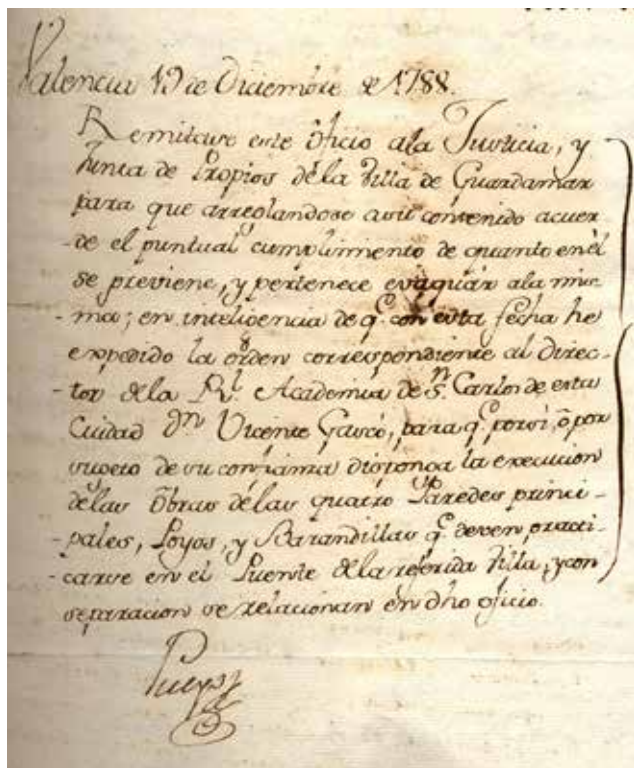 Valencia 19 de Diciembre de 1788.
Remitase este Oficio ala Justicia, y
Junta de Propios dela Villa de Guardamar
para que arreglandose asu contenido acuer-
-de el puntual cumplimiento de quanto enèl
se previene, y pertenece evaquàr ala mis-
-ma; en inteligencia de q.e con esta fecha he
expedido la òrden correspondiente al direc-
-tor dela R.l Academia de S.n Carlos de esta
Ciudad D.n Vicente Gascò, para q.e porsi, ò por
sugeto de su confianza disponga la execucion
delas Obras delas quatro Paredes princi-
-pales, Poyos, y Barandillas q.e deven practi-
-carse en el Puente dela referida Villa, y con
separacion se relacionan en dho oficio.